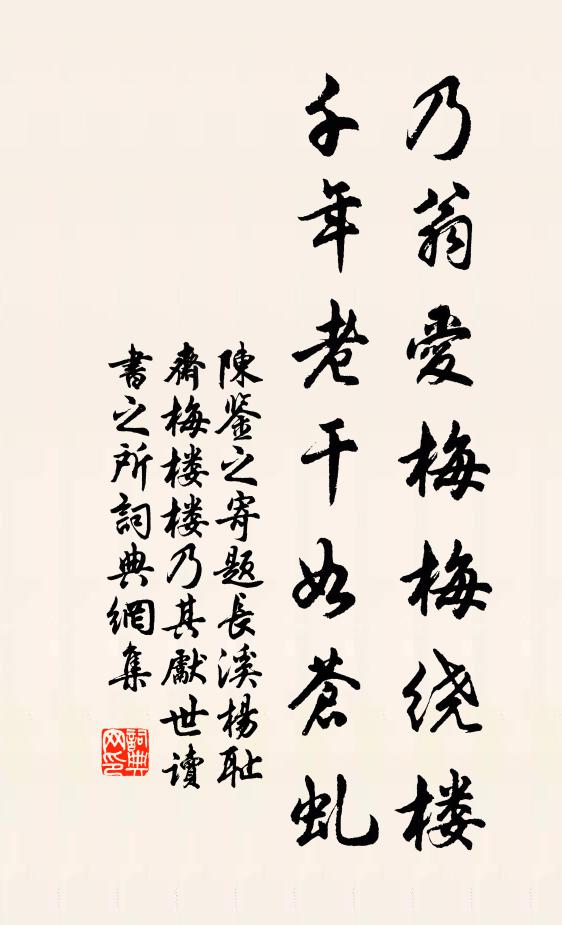 乃翁愛梅梅绕楼
千年老干如蒼虬
陳鉴之寄题長溪楊耻
齋梅楼楼乃其獻世讀
書之所詞典網集
詞典网印